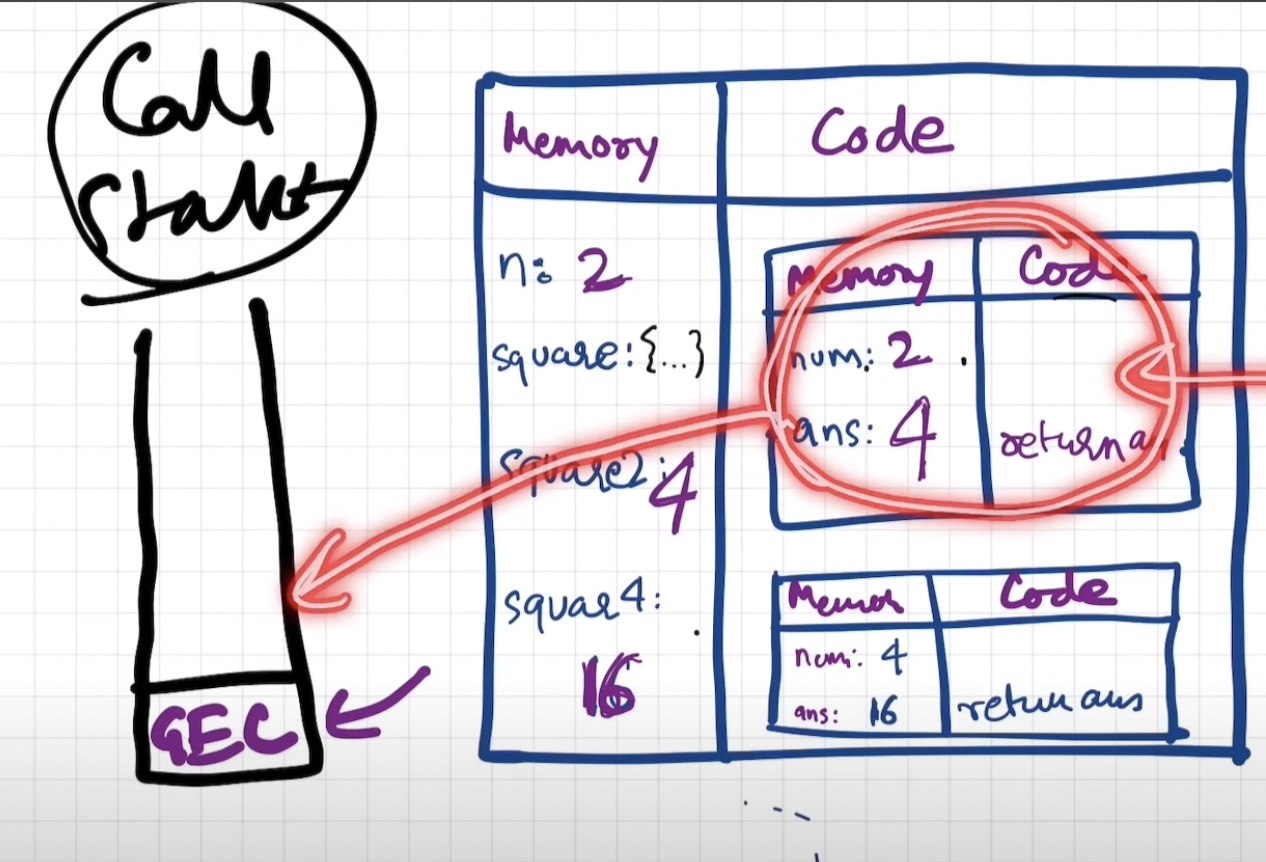 Call
Stack
GEC
Memory
Code
n: 2
square: {...}
square2: 4
squar4:
16
Memory
Code
num: 2
ans: 4
return a
Memor
Code
num: 4
ans: 16
return ans